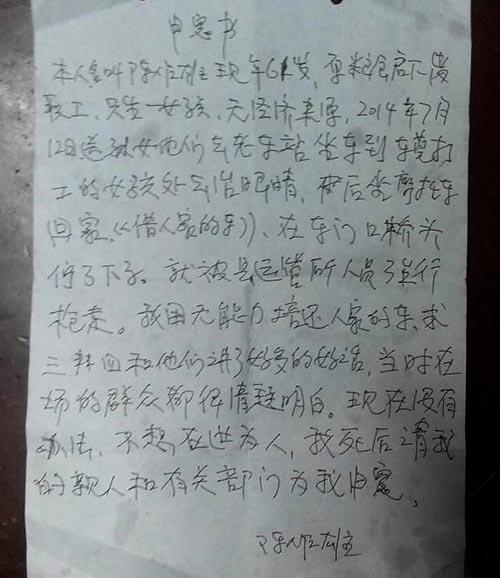 申冤书
本人名叫陈作雄现年61岁,原粮食局下岗
职工,只生一女孩,无经济来源,2014年7月
12日送孙女他们去老车站坐车到 打
工的女孩处去治眼睛,然后坐摩托车
回家,(《借人家的车》)、在东门口桥头
停了下子。就被县运管所人员强行
抢走。我因无能力培还人家的车,求
三 四和他们讲了好多的好话,当时在
场的群众都很清楚明白。现在没有
办法,不想在世为人,我死后请我
的亲人和有关部门为我申冤,
陈作雄